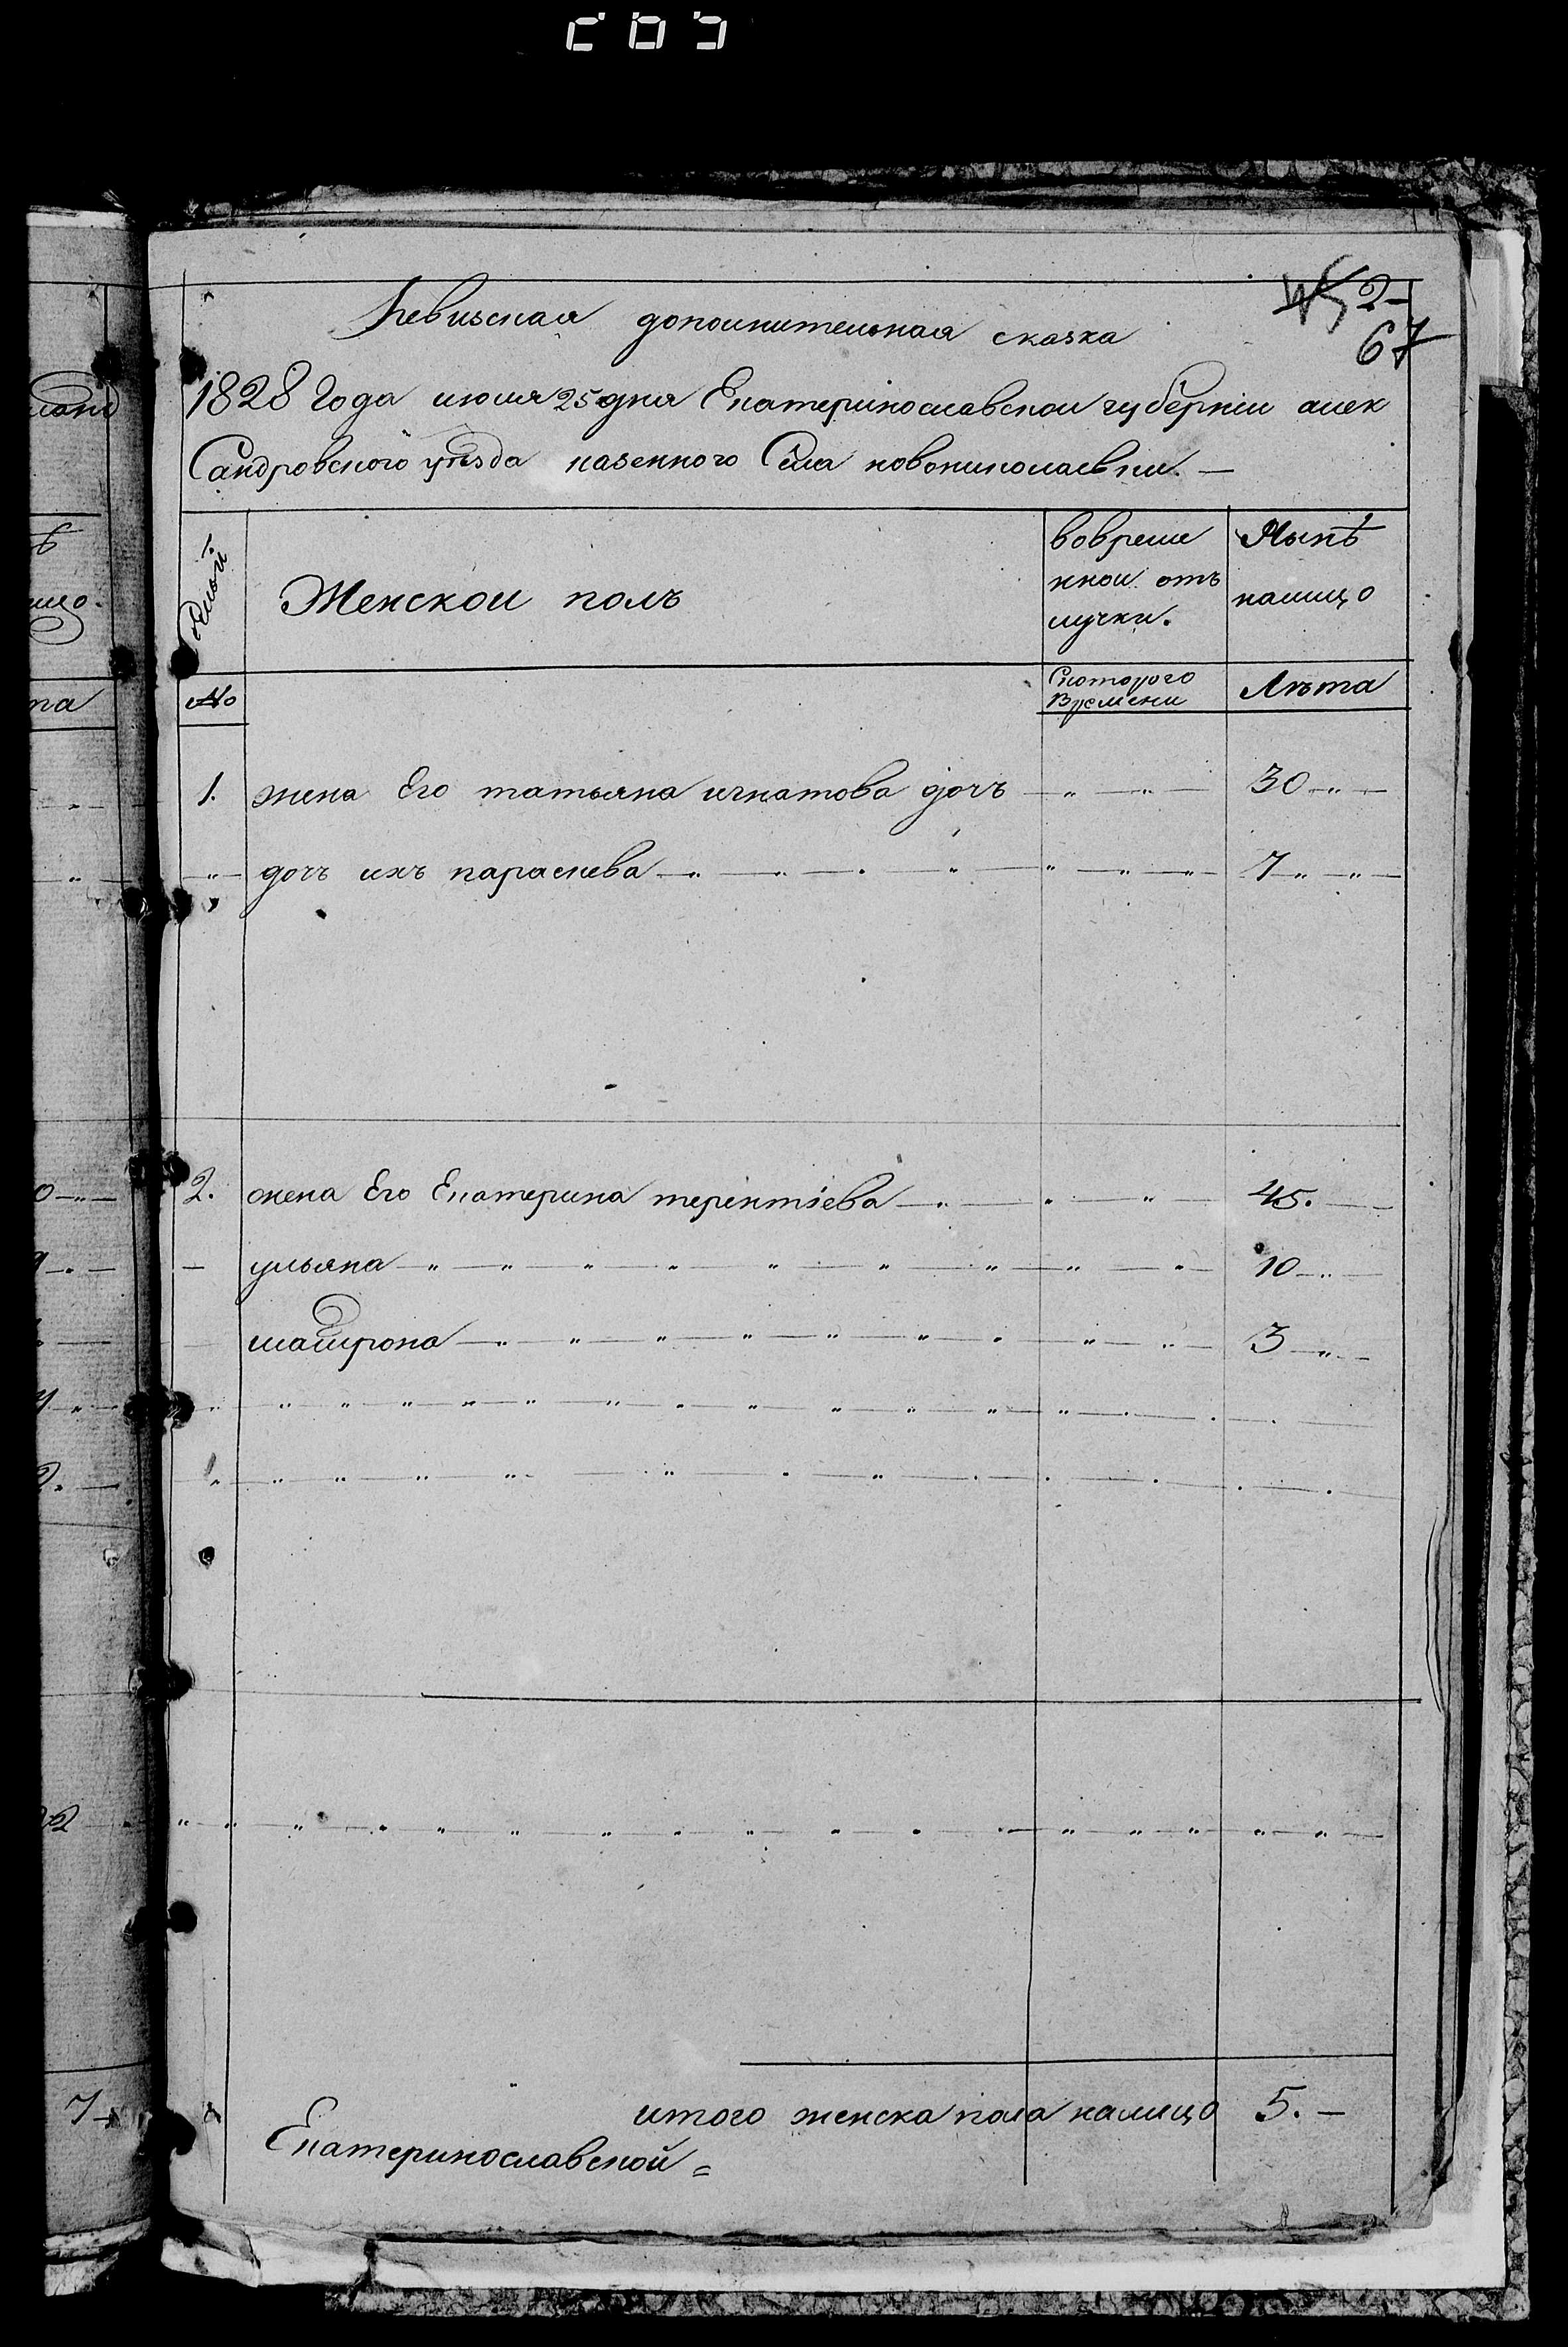 2-
67
Ревизская дополнительная сказка
1828 Года июля 25 дня Екатеринославской губернiи алек
Сандровского уезда казенного Села новониколаевки. —
Женской полъ
вовреме
нной отъ
лучки.
Нынѣ
налицо
№
Скоторого
Времени
Лѣта
1. жена Его татьяна игнатова дочъ 30
дочъ ихъ параскева 7
2. жена Его Екатерина терентiева 45.
— ульяна 10
матрона 3
итого женска пола налицо 5. —
Екатеринославской =